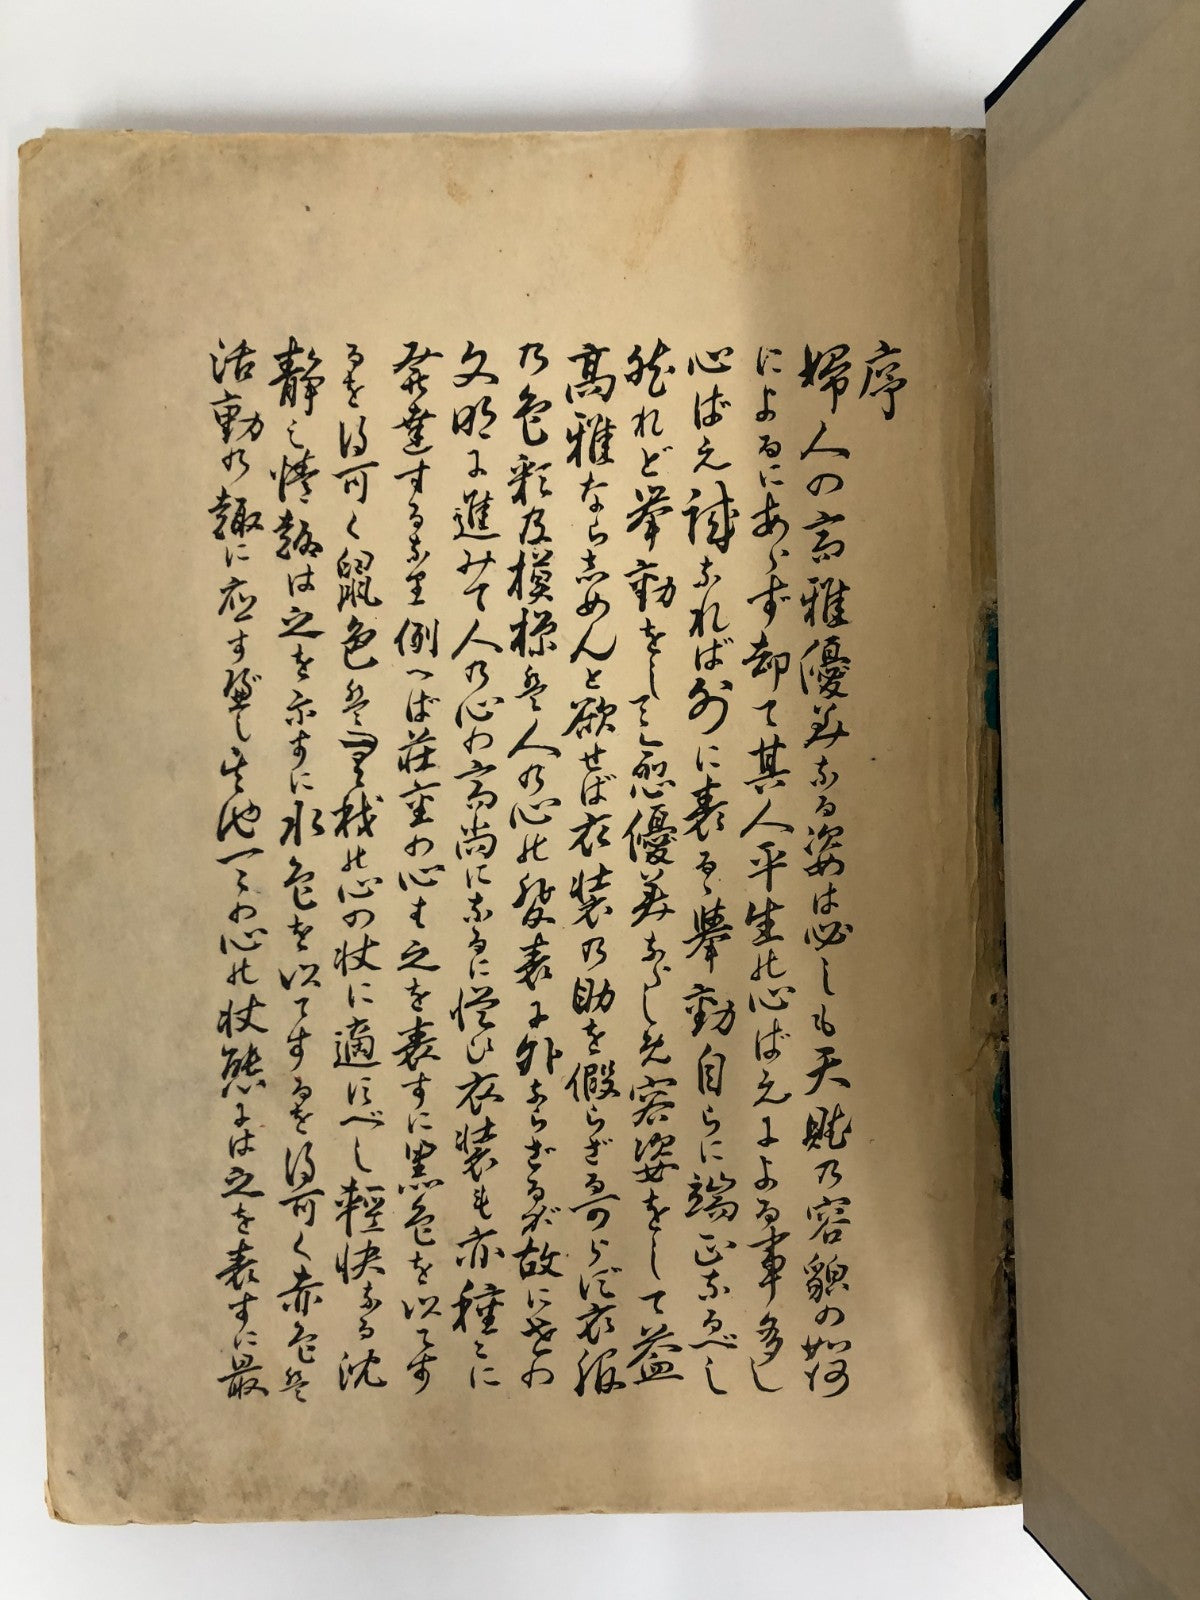 序
婦人の高雅優美なる姿は必しも天賦の容貌の如何
によるにあらず却て其人平生の心ばえによる事多し
心ばえ誠なれば外に表るゝ挙動自らに端正なるべし
然れど挙動をして愈優美ならしめ容姿をして益
高雅ならしめんと欲せば衣装の助を假らざる可らず衣服
の色彩及模様は人の心の発表に外ならざるが故に世の
文明に進みて人の心の高尚になるに從ひ衣装も亦種々に
発達するなり例へば荘重の心も之を表すに黒色を以てす
るを得可く鼠色は の心の状に適すべし軽快なる沈
静の情趣は之を示すに水色を以てするを得可く赤色は
活動の趣に応ずべし其他一々の心の状態には之を表すに最